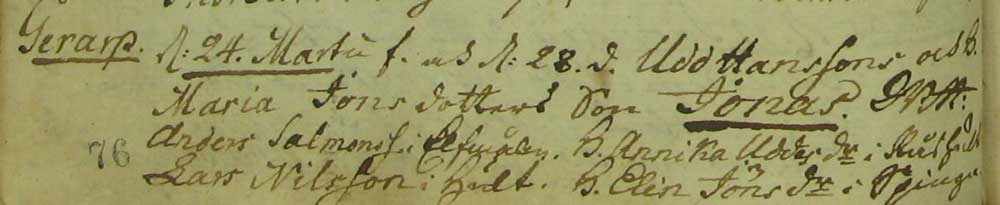 Gerarp. N: 24. Martii f. ads N: 28. d. Udd Hanssons och h.
Maria Jöns dotters Son Jonas. DVtt:
76 Anders Salmonss. i Elsmåla. h. Annika Uddes dr i
Lars Nilsson i Hult. h. Elin Jöns dr i